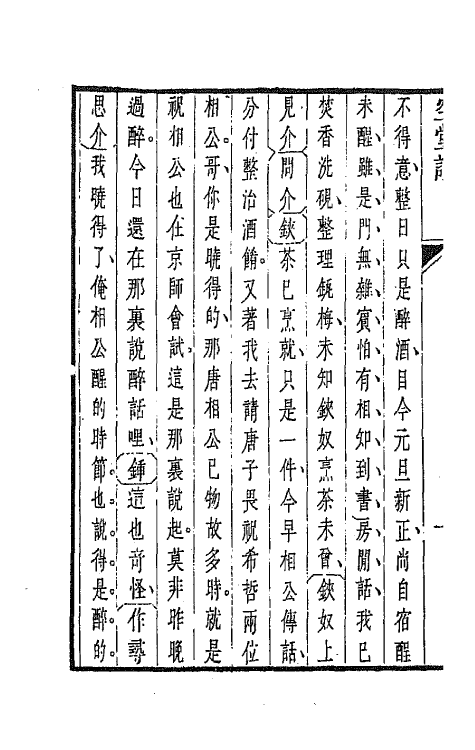 不得意、整日只是醉酒、目今元旦新正、尚自宿酲
未醒、雖是門無雜賓、怕有相知到書房閒話、我已
焚香洗硯、整理瓶梅、未知鋏奴烹茶未曾、鋏奴上
見介問介鋏茶已烹就、只是一件、今早相公傳話、
分付整治酒餚。又著我去請唐子畏祝希哲兩位
相公、哥、你是曉得的、那唐相公已物故多時。就是
祝相公也在京師會試、這是那裏說起。莫非昨晚
過醉。今日還在那裏說醉話哩、鍾這也奇怪、作尋
思介我曉得了、俺相公醒的時節。也說得是醉的。
堂
一